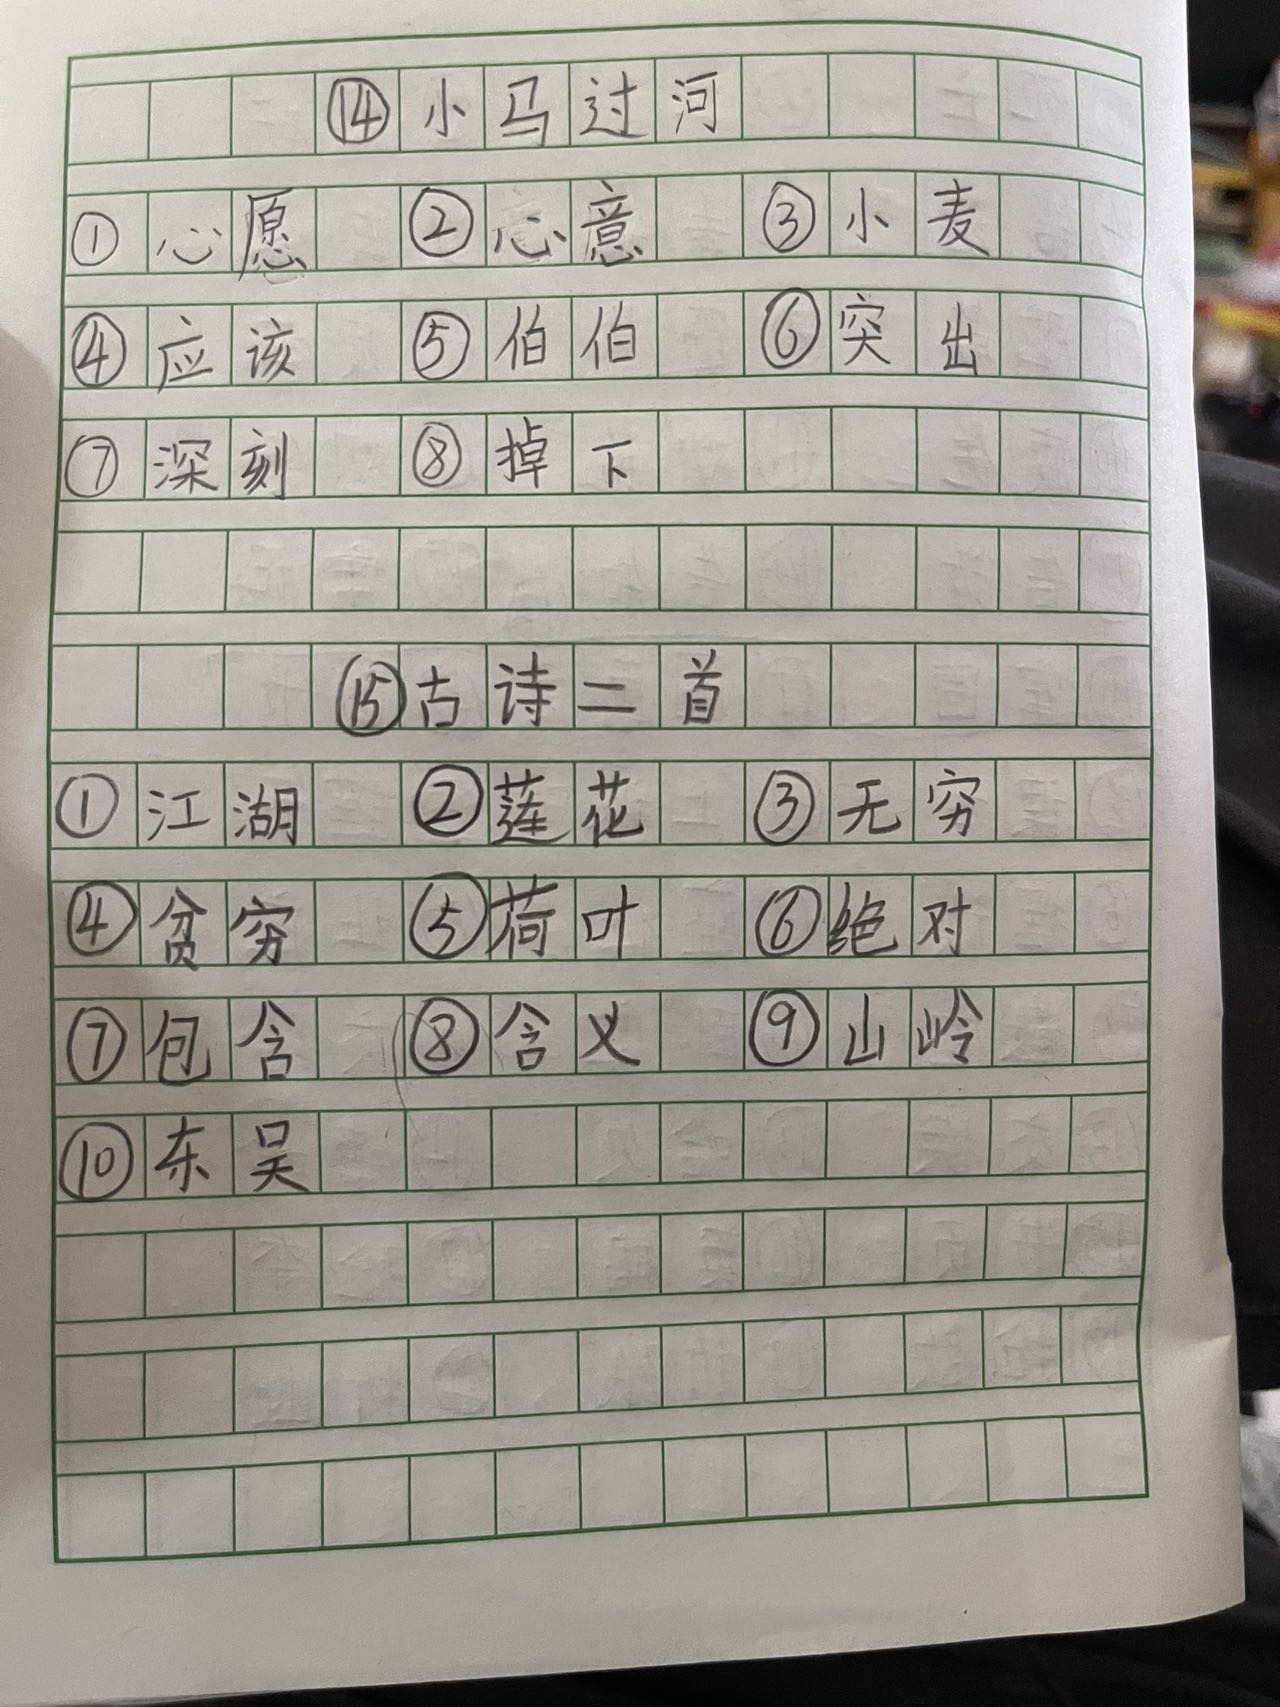 ⑭小马过河
①心愿 ②心意 ③小麦
④应该 ⑤伯伯 ⑥突出
⑦深刻 ⑧掉下
⑮古诗二首
①江湖 ②莲花 ③无穷
④贫穷 ⑤荷叶 ⑥绝对
⑦包含 ⑧含义 ⑨山岭
⑩东吴